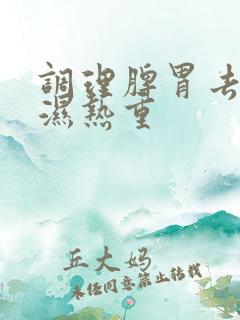 調理脾胃去
濕熱重
丘大妈
未经同意禁止转载